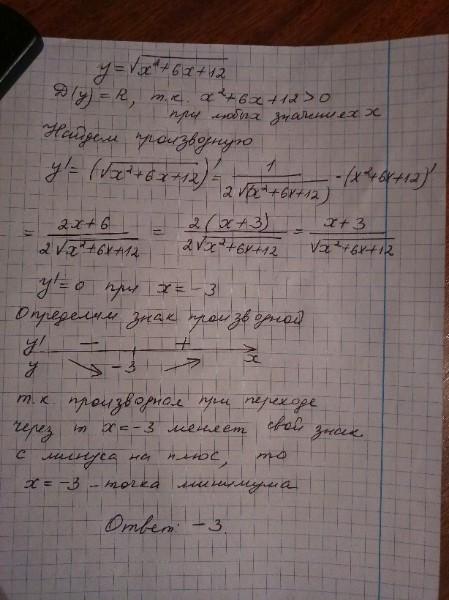 y = √(x²+6x+12)
D(y) = R, т.к. x²+6x+12 > 0
при любых значениях x
Найдем производную
y' = (√(x²+6x+12))' = 1/(2√(x²+6x+12)) · (x²+6x+12)'
= (2x+6)/(2√(x²+6x+12)) = 2(x+3)/(2√(x²+6x+12)) = (x+3)/√(x²+6x+12)
y' = 0 при x = -3
Определим знак производной
y' − + x
y ↘ -3 ↗
т.к производная при переходе
через т x = -3 меняет свой знак
с минуса на плюс, то
x = -3 - точка минимума
Ответ: -3.